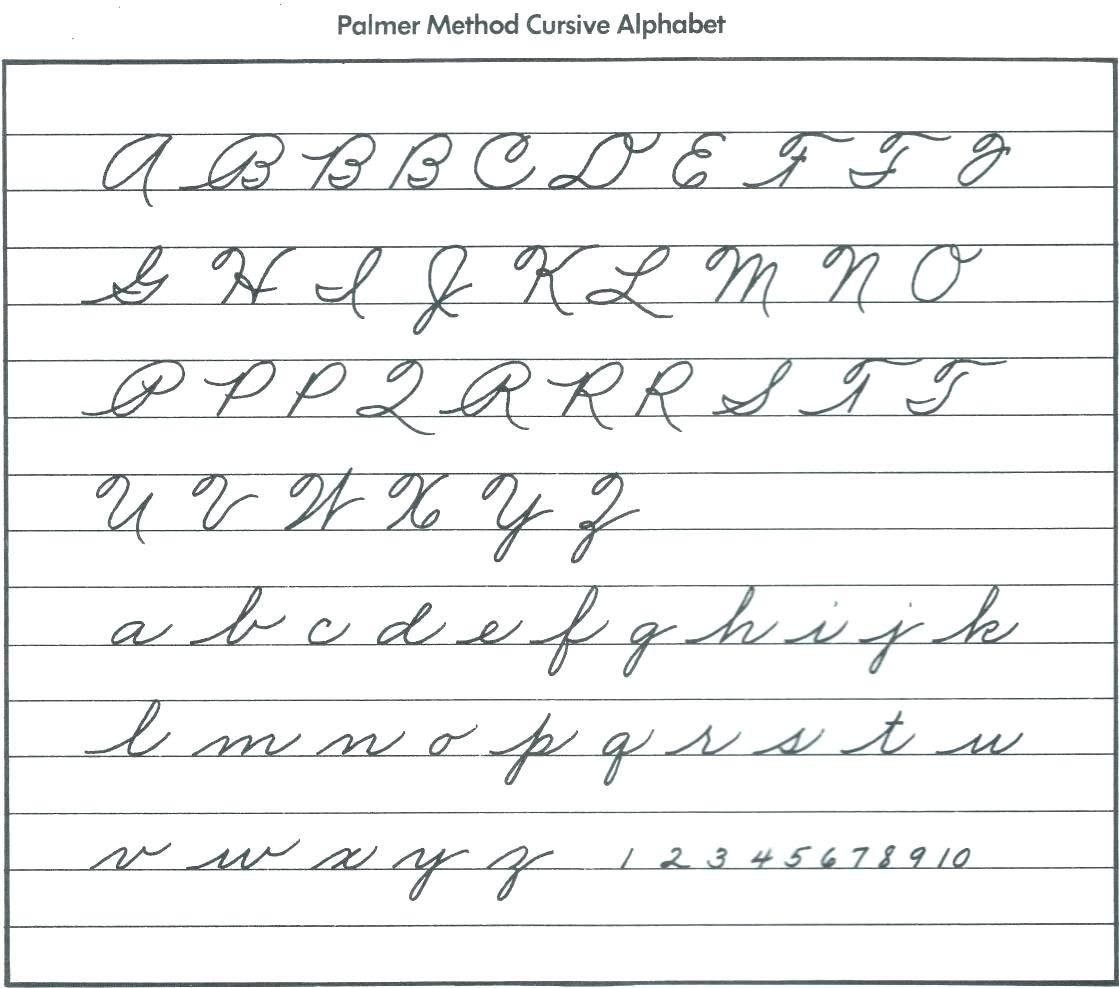 Palmer Method Cursive Alphabet
A B B B C D E F F
G H I J K L M N O
P P P Q R R R S T T
U V W X Y Z
a b c d e f g h i j k
l m n o p q r s t u
v w x y z 1 2 3 4 5 6 7 8 9 10